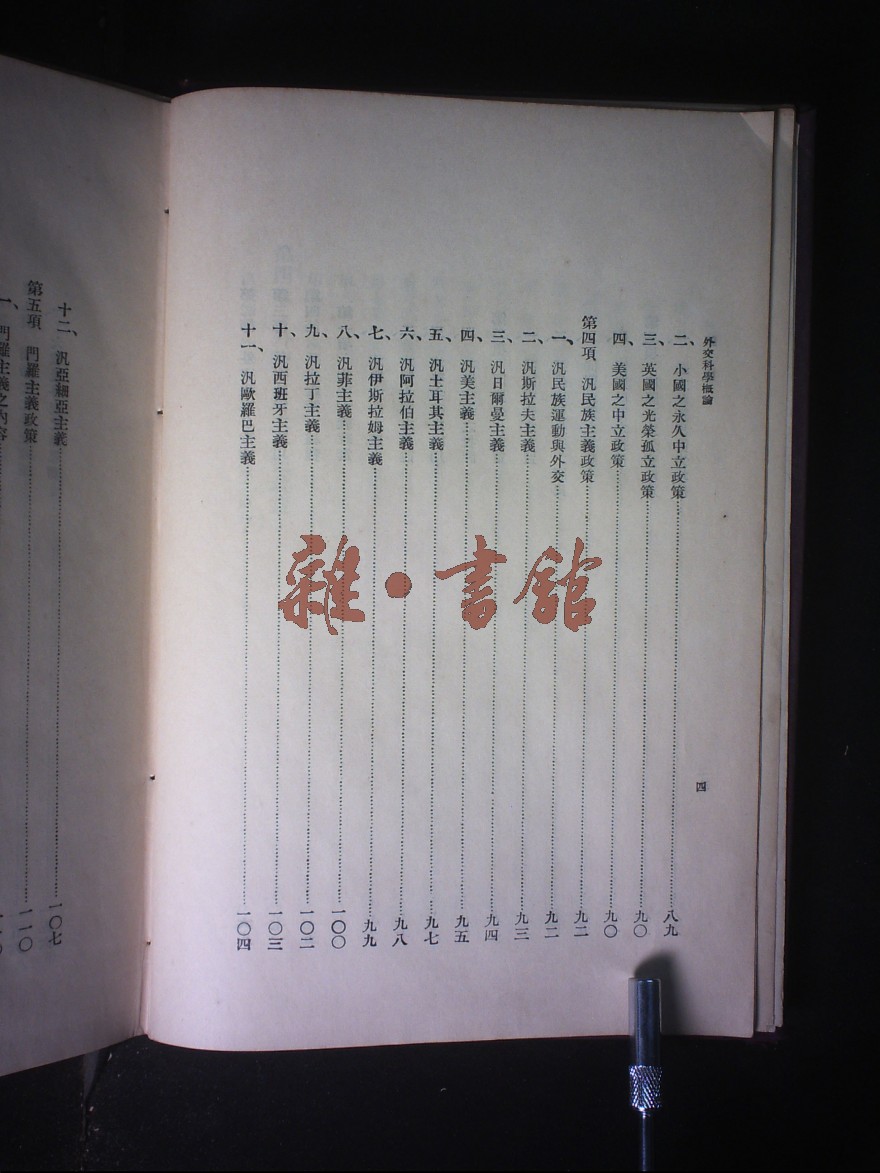 外交科學概論
四
二、小國之永久中立政策……八九
三、英國之光榮孤立政策……九〇
四、美國之中立政策……九〇
第四項 汎民族主義政策……九二
一、汎民族運動與外交……九二
二、汎斯拉夫主義……九三
三、汎日爾曼主義……九四
四、汎美主義……九五
五、汎土耳其主義……九七
六、汎阿拉伯主義……九八
七、汎伊斯拉姆主義……九九
八、汎菲主義……一〇〇
九、汎拉丁主義……一〇二
十、汎西班牙主義……一〇三
十一、汎歐羅巴主義……一〇四
十二、汎亞細亞主義……一〇七
第五項 門羅主義政策……一一〇
一、門羅主義之內容
雜·書館